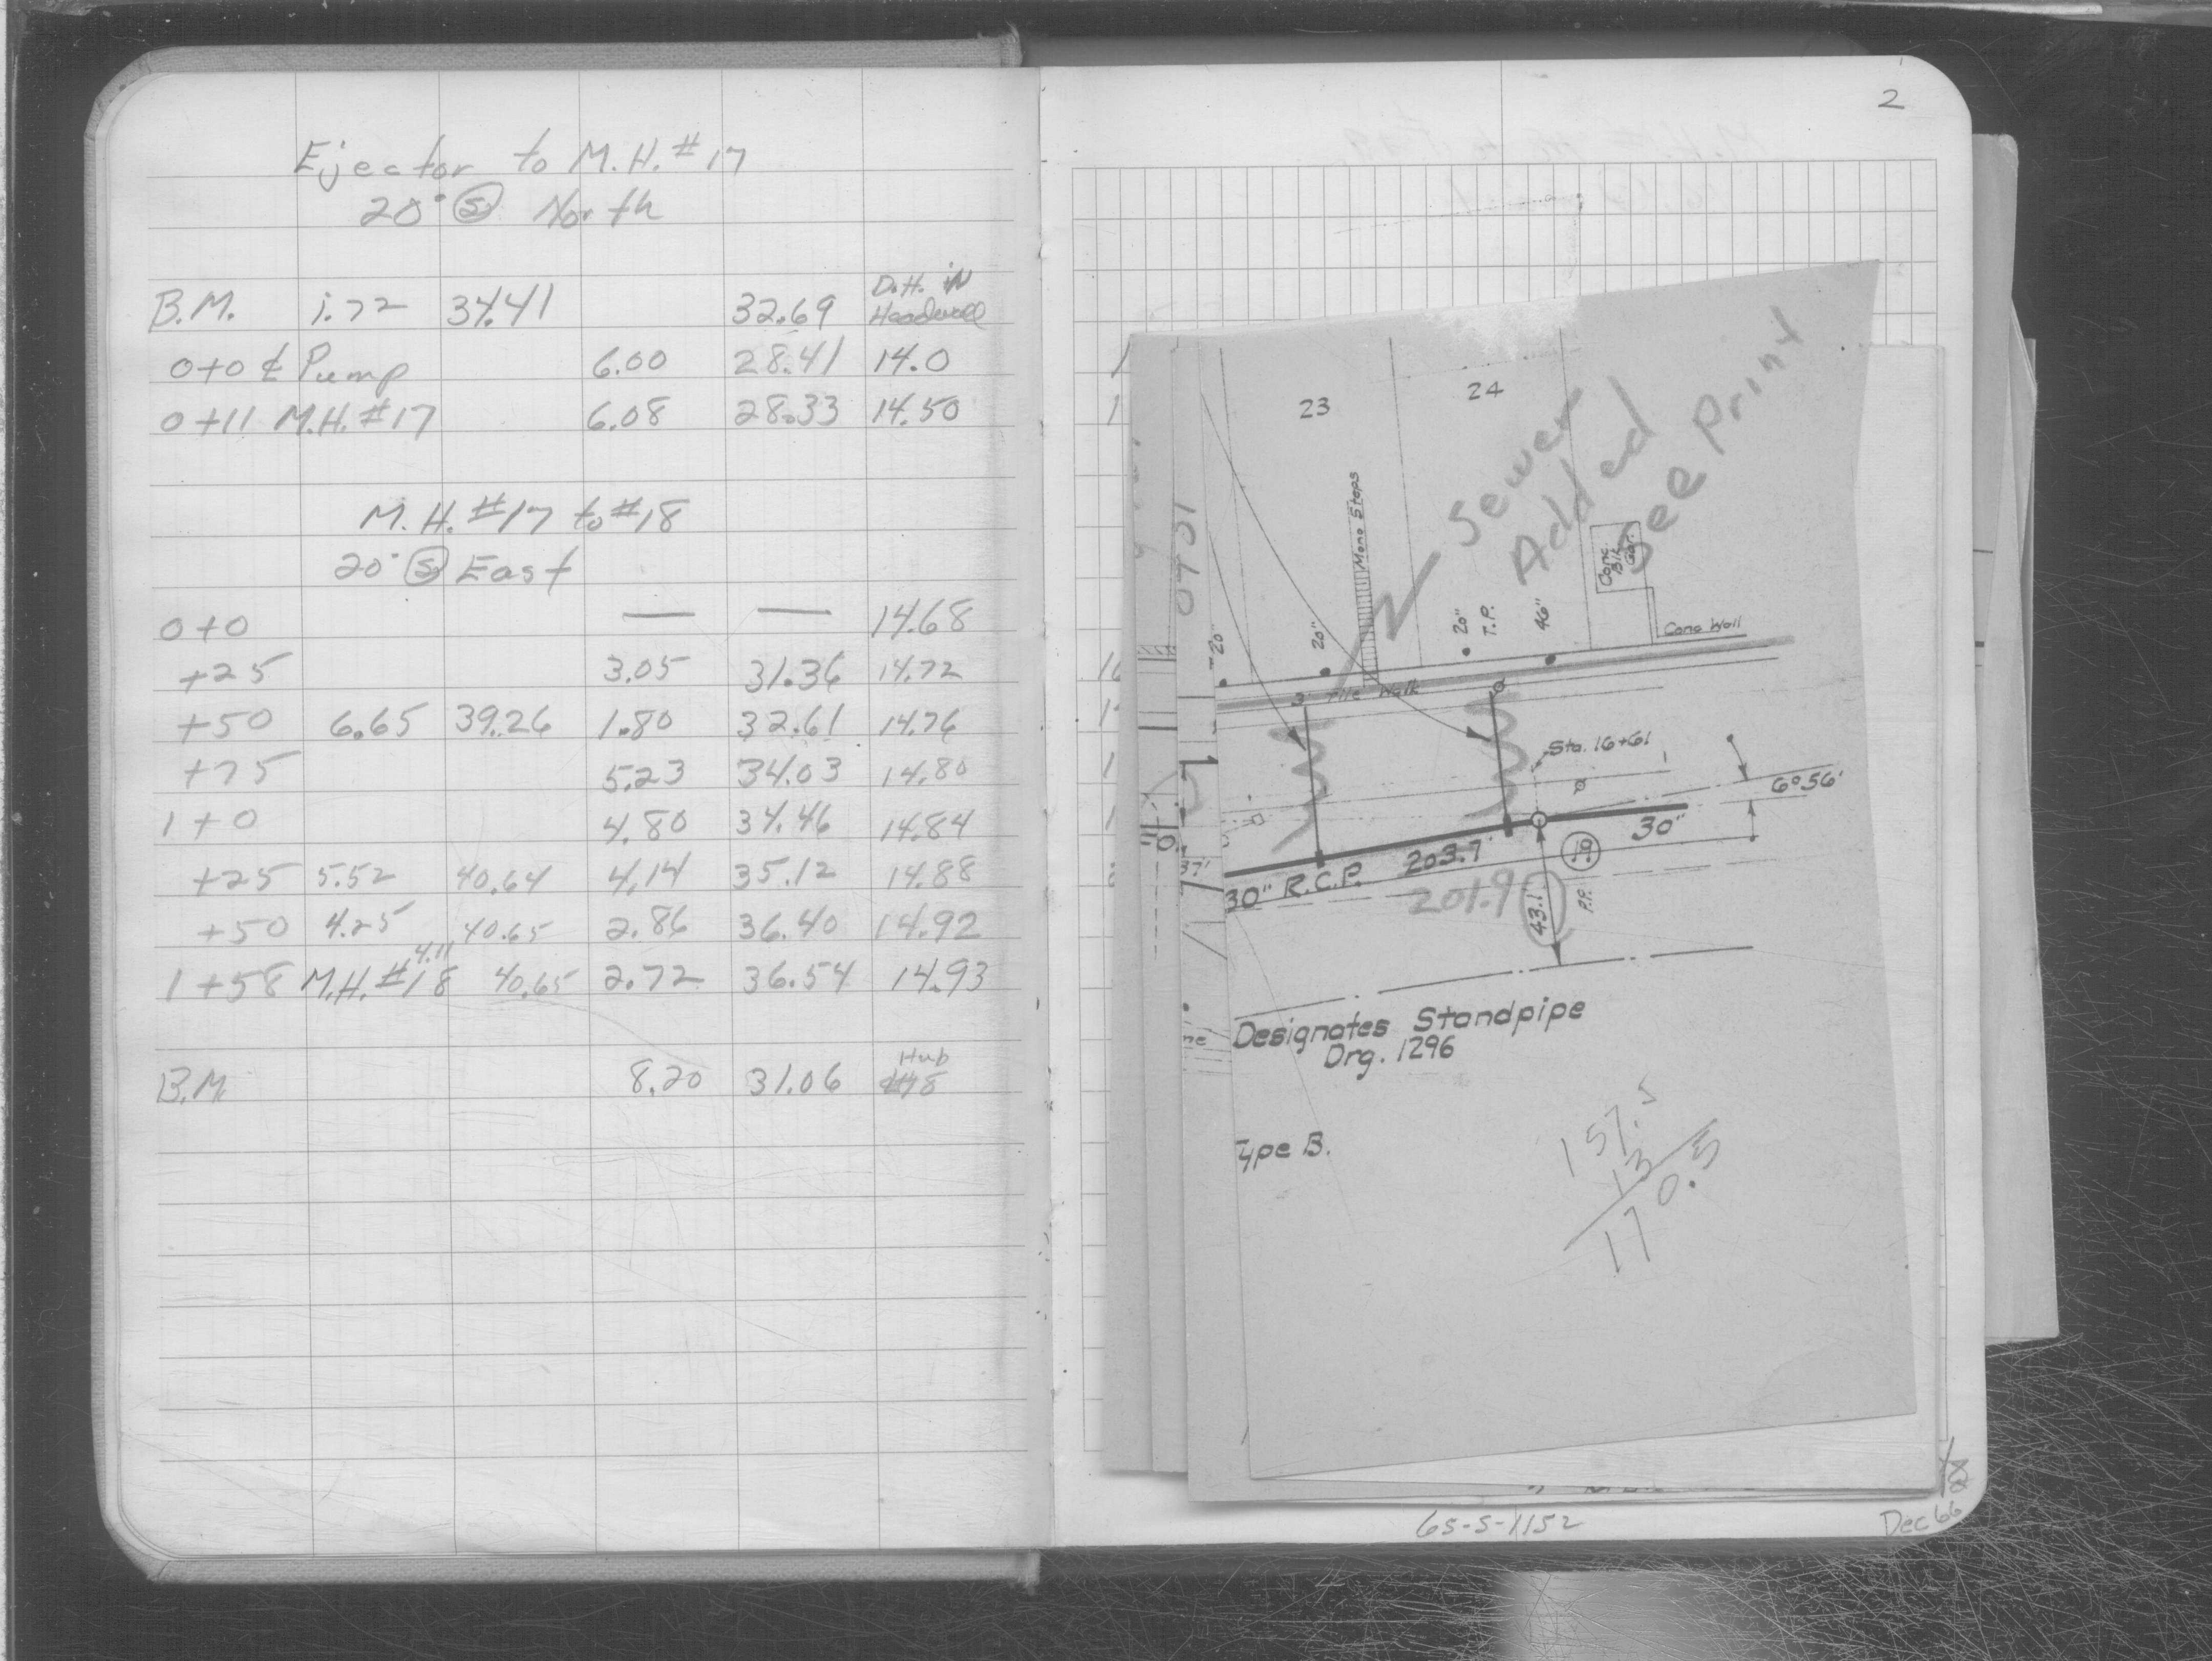 Ejector to M.H. #17
20' Ⓢ North
B.M. 1.72 34.41 32.69 D.H. in Headwall
0+0 ₵ Pump 6.00 28.41 14.0
0+11 M.H. #17 6.08 28.33 14.50
M.H. #17 to #18
20' Ⓢ East
0+0 — — 14.68
+25 3.05 31.36 14.72
+50 6.65 39.26 1.80 32.61 14.76
+75 5.23 34.03 14.80
1+0 4.80 34.46 14.84
+25 5.52 40.64 4.14 35.12 14.88
+50 4.25 40.65 2.86 36.40 14.92
4.11
1+58 M.H. #18 40.65 2.72 36.54 14.93
B.M. 8.20 31.06 Hub #18
2
23
24
Sewer
Added
See Print
Mono Steps
Conc.
Blk.
Gar.
20"
20"
20"
T.P.
46"
Conc Wall
3' Tile Walk
Sta. 16+61
6°56'
30" R.C.P. 203.7' 30"
201.9
43.1'
P.P.
37'
Designates Standpipe
Drg. 1296
ype B.
157.5
13
170.5
65-S-1152
Dec 66